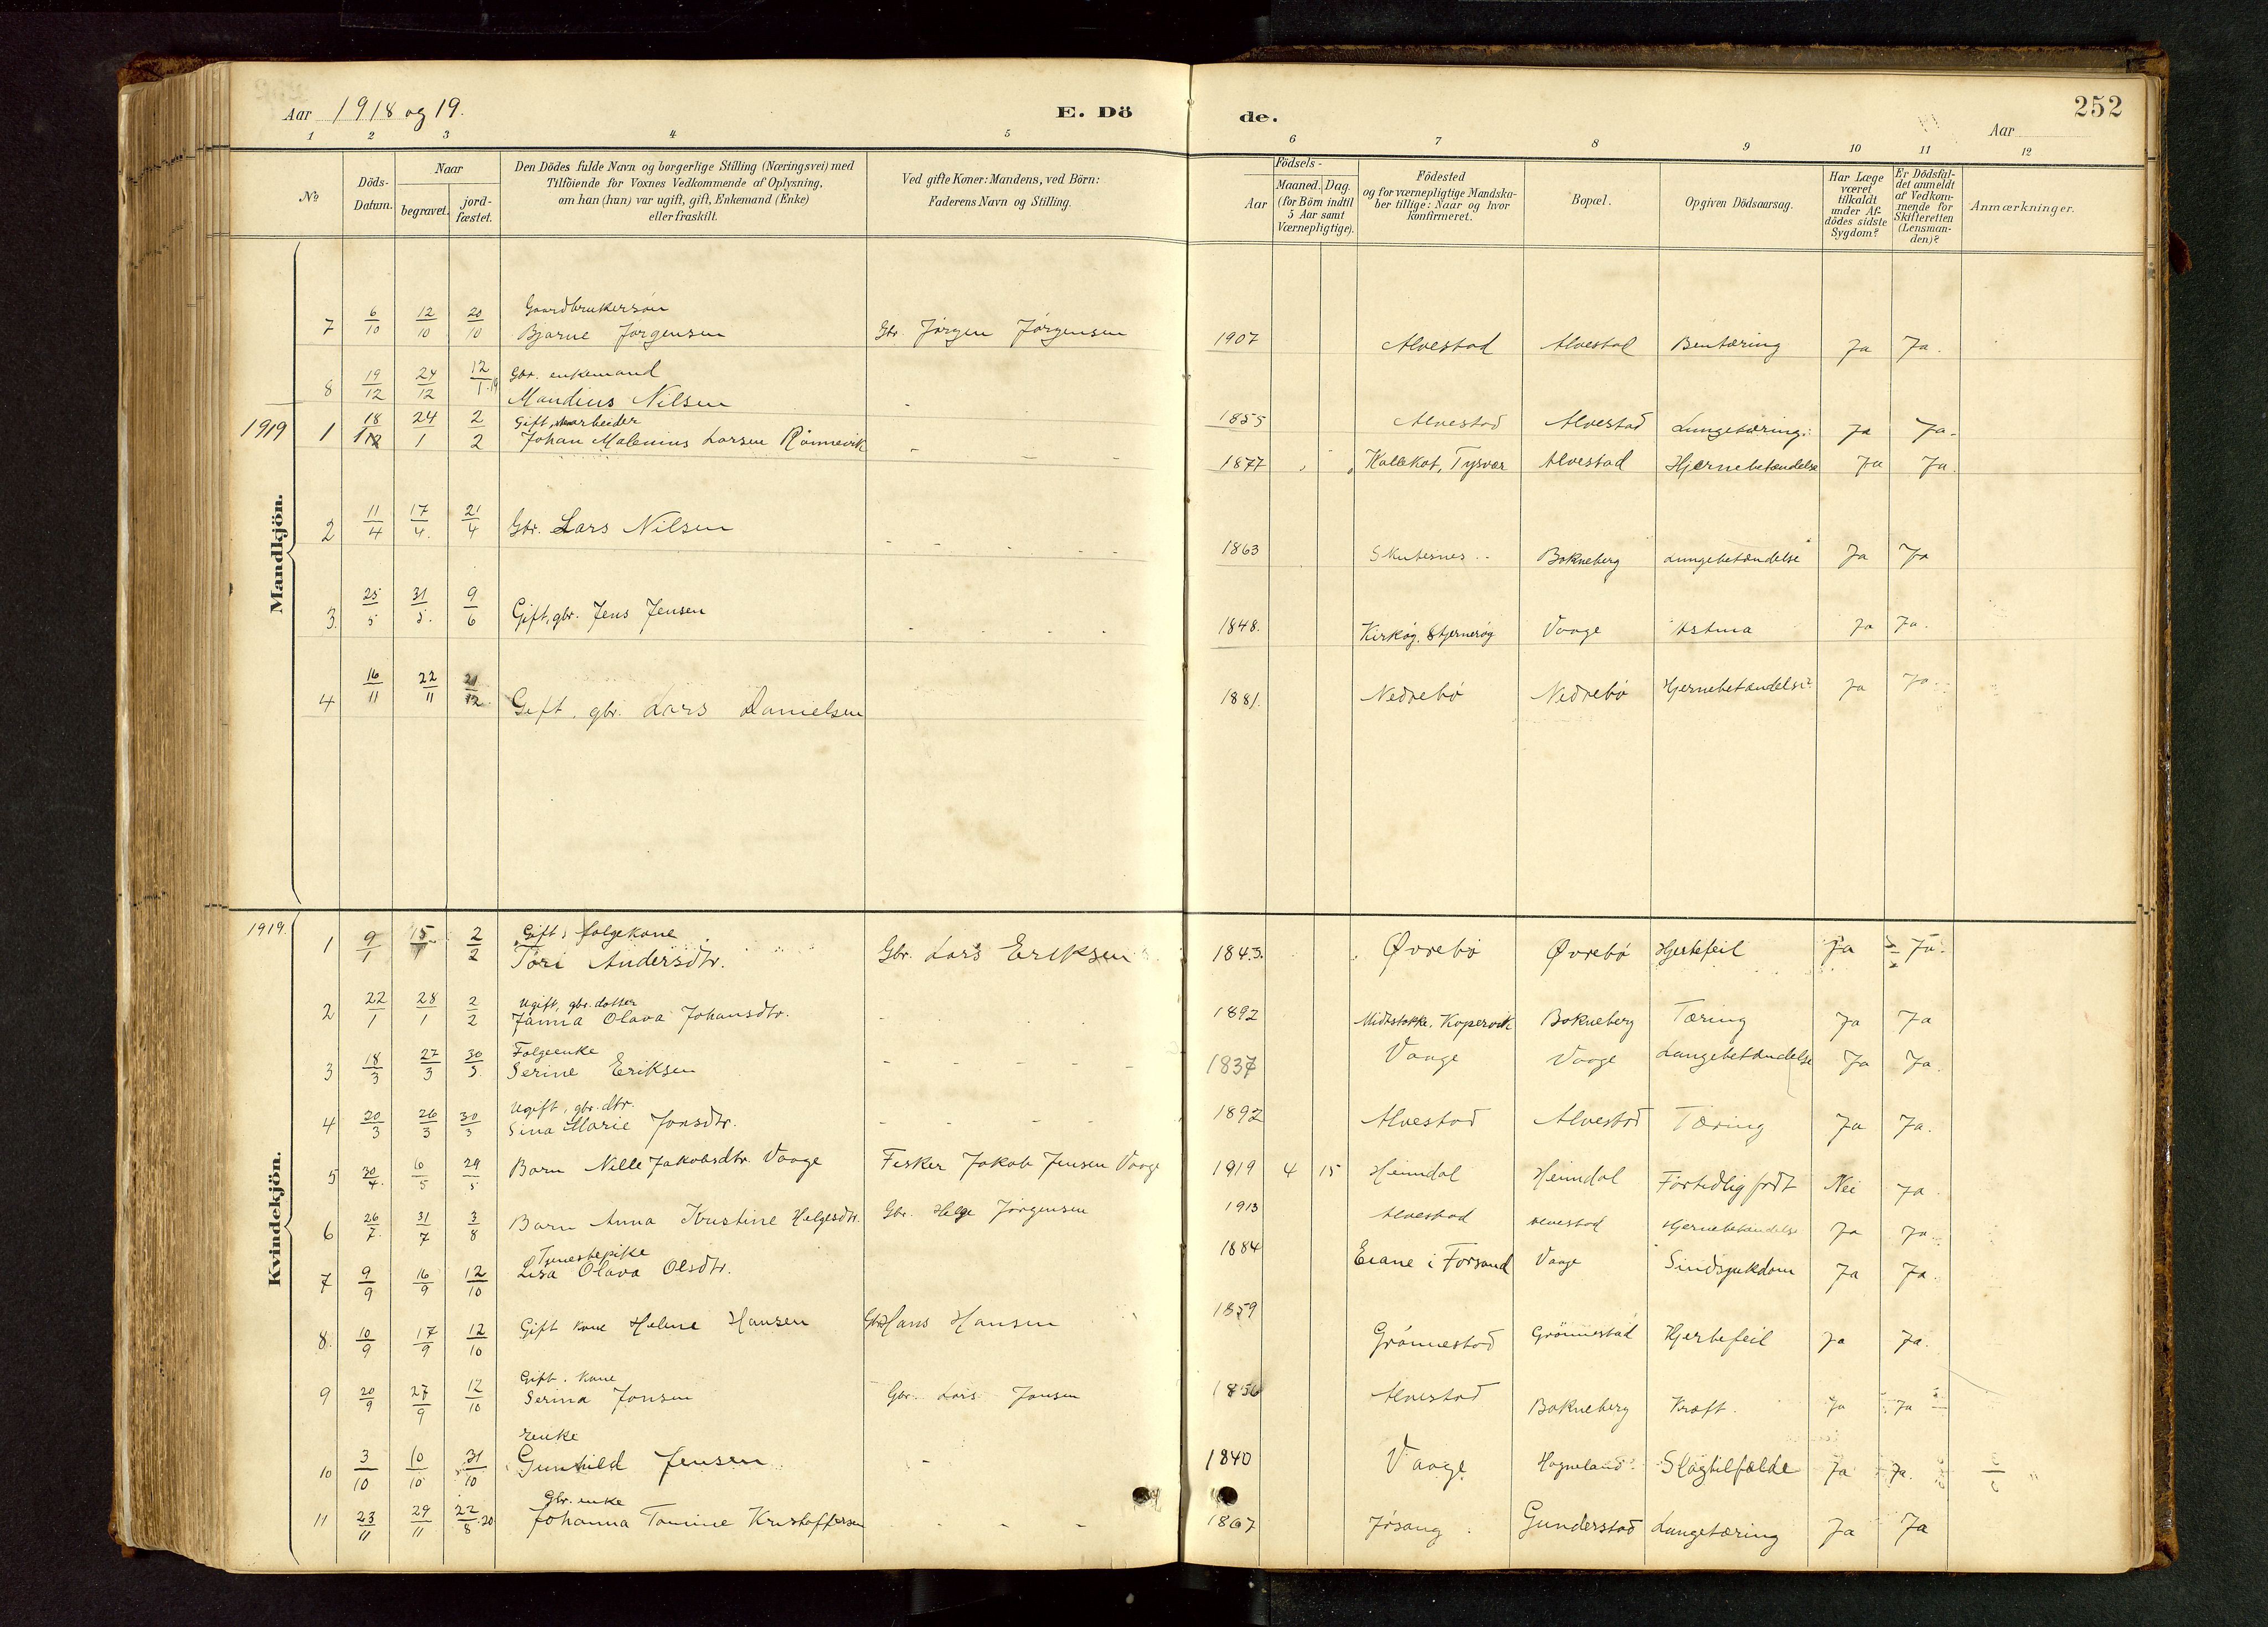 Aar 1918 og 19.
E. Dö
de.
Aar
252
1 2 3 4 5 6 7 8 9 10 11 12
No
Döds-Datum.
Naar
begravet.
jord-fæstet.
Den Dödes fulde Navn og borgerlige Stilling (Næringsvei) med
Tilföiende for Voxnes Vedkommende af Oplysning,
om han (hun) var ugift, gift, Enkemand (Enke)
eller fraskilt.
Ved gifte Koner: Mandens, ved Börn:
Faderens Navn og Stilling.
Födsels-
Aar
Maaned. Dag.
(for Börn indtil
5 Aar samt
Værnepligtige).
Födested
og for værnepligtige Mandska-
ber tillige: Naar og hvor
konfirmeret.
Bopæl.
Opgiven Dödsaarsag.
Har Læge
været
tilkaldt
under Af-
dödes sidste
Sygdom?
Er Dödsfal-
det anmeldt
af Vedkom-
mende for
Skifteretten
(Lensman-
den)?
Anmærkninger.
Mandkjön.
Gaardbrukersön
7 6/10 12/10 20/10 Bjarne Jørgensen Gbr. Jørgen Jørgensen 1907 Alvestad Alvestad Bentæring Ja Ja.
Gbr. enkemand
8 19/12 24/12 12/1 19 Mandius Nilsen - 1855 Alvestad Alvestad Lungetæring: Ja Ja.
Gift, arbeider
1919 1 18/1 24/1 2/2 Johan Malenius Larsen Rönnevik - - - 1877 Kallekot, Tysvær Alvestad Hjernebetændelse Ja Ja.
2 11/4 17/4. 21/4 Gbr. Lars Nilsen - - - - - 1863 Skutesnes.. Bokneberg Lungebetændelse Ja Ja
3. 25/5 31/5. 9/6 Gift, gbr. Jens Jensen - - - 1848. Kirköy, Stjerneröy Vaage Astma Ja Ja.
4 16/11 22/11 21/12. Gift, gbr. Lars Danielsen 1881. Nedrebø Nedrebø Hjernebetændelse Ja Ja
Kvindekjön.
1919.
Gift, følgekone
1 9/1 15 2/2 Töri Andersdtr. Gbr. Lars Eriksen 1843. Øvrebø Øvrebø Hjertefeil Ja Ja.
Ugift, gbr. datter
2 22/1 28/1 2/2 Janna Olava Johansdtr. - - 1892 Midtstokke, Kopervik Bokneberg Tæring Ja Ja
Følgeenke
3 18/3 27/3 30/5. Serine Eriksen - - - - - 1837 Vaage Vaage Lungebetændelse Ja Ja.
Ugift, gbr. dtr.
4 20/3 26/3 30/3 Sina Marie Jonsdtr. - - - - 1892 Alvestad Alvestad Tæring Ja Ja.
5 30/4. 6/5 29/5 Barn Nille Jakobsdtr. Vaage Fisker Jakob Jensen Vaage 1919 4 15 Heimdal Heimdal Fortidlig født Nei Ja
6 26/7. 31/7 3/8 Barn Anna Kristine Helgesdtr. Gbr. Helge Jørgensen 1913 Alvestad Alvestad Hjernebetændelse Ja Ja.
Tjenestepike
7 9/9 16/9 12/10 Lisa Olava Olsdtr. 1884 Eiane i Forsand Vaage Sindsjukdom Ja Ja.
8. 10/9 17/9 12/10 Gift kone Helene Hansen Gbr. Hans Hansen 1859 Grønnestad Grønnestad Hjertefeil Ja Ja.
Gift. kone
9 20/9 27/9 12/10 Serina Jonsen Gbr. Lars Jonsen 1856 Alvestad Bokneberg Kræft. Ja Ja
enke
10 3/10 10/10 31/10 Gunhild Jensen - 1840 Vaage Hogneland Slagtilfælde Ja Ja.
Gbr. enke
11 23/11 29/11 22/8.20 Johanna Tomine Kristoffersen - - - 1867 Jøsang. Gunderstad Lungetæring Ja Ja